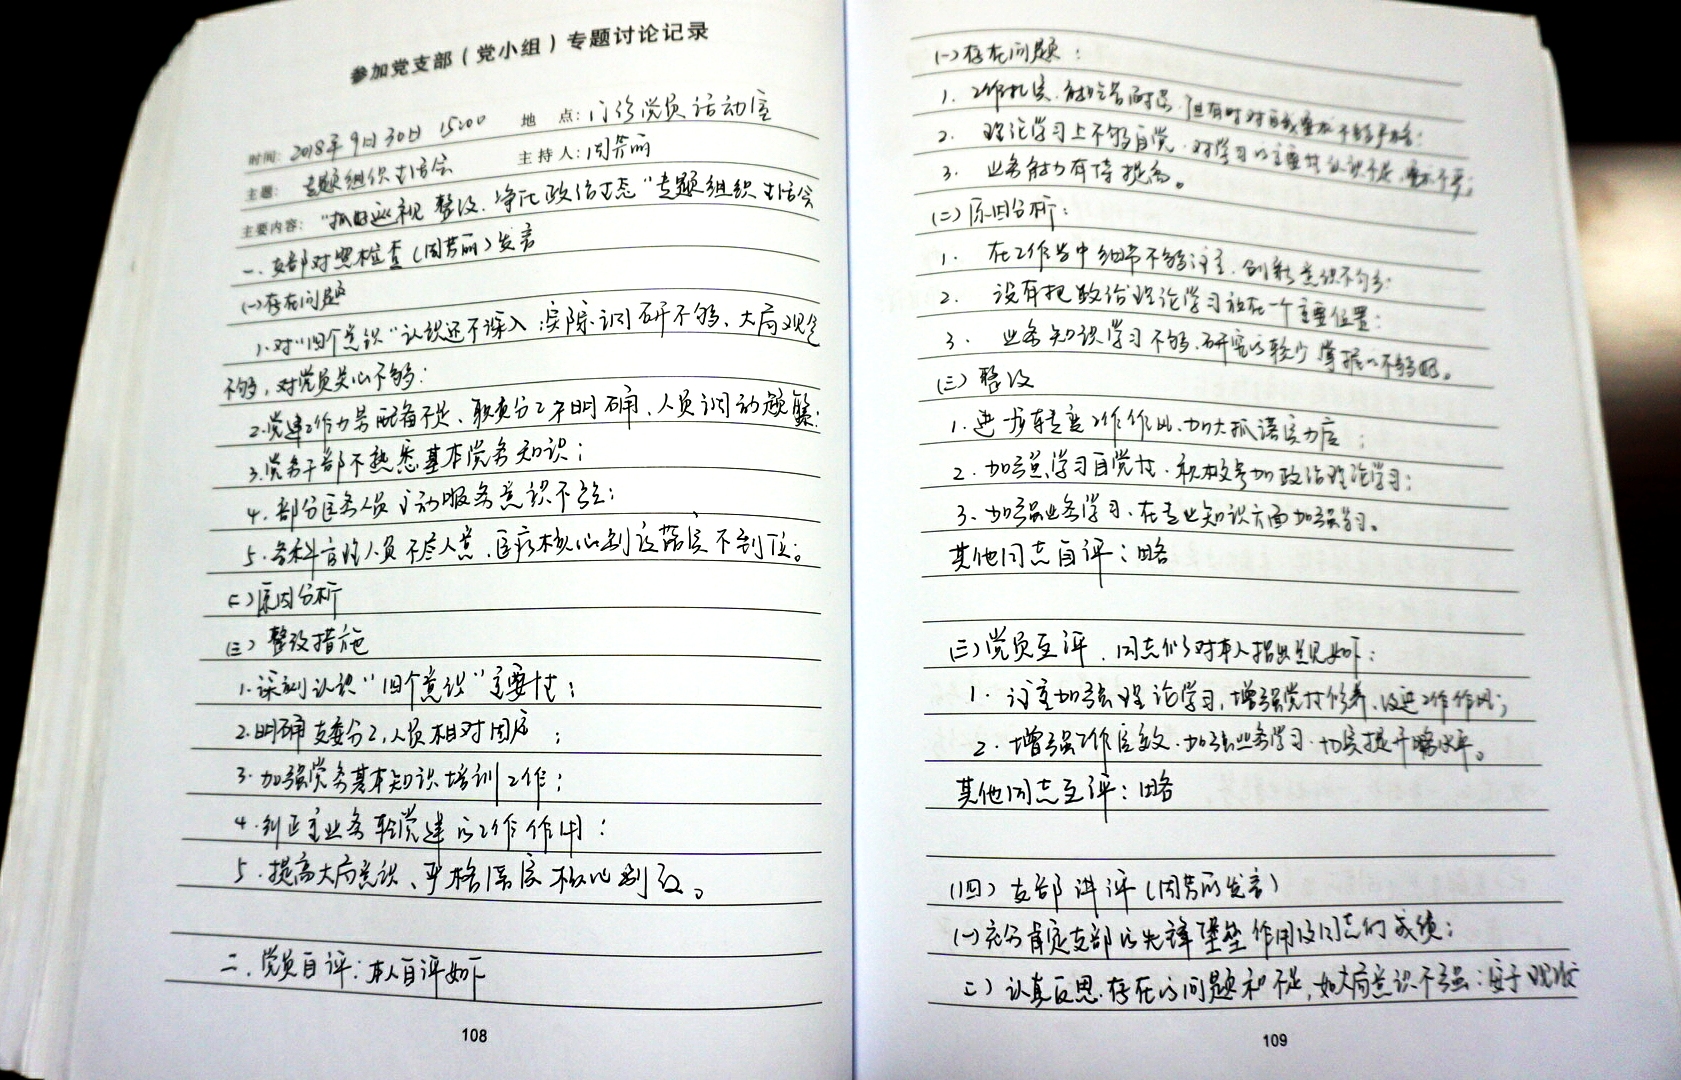 参加党支部（党小组）专题讨论记录
时间: 2018年9月30日 15:00 地 点: 门诊党员活动室
主题: 专题组织生活会 主持人: 周芳丽
主要内容: "抓好巡视整改、净化政治生态"专题组织生活会
一、支部对照检查（周芳丽）发言
(一)存在问题
1、对"四个意识"认识还不深入；实际调研不够、大局观念
不够，对党员关心不够；
2.党建工作力量配备不足、职责分工不明确、人员调动频繁；
3.党务干部不熟悉基本党务知识；
4.部分医务人员主动服务意识不强；
5.各科言路人员不尽人意、医疗核心制度落实不到位。
(二)原因分析
(三)整改措施
1.深刻认识"四个意识"重要性；
2.明确支委分工,人员相对固定；
3.加强党务基本知识培训工作；
4.纠正重业务轻党建的工作作用；
5.提高大局意识、严格落实核心制度。
二、党员自评：本人自评如下
108
(一)存在问题：
1. 工作扎实、能吃苦耐劳、但有时对自我要求不够严格；
2. 理论学习上不够自觉、对学习的重要性认识不足，要求不严；
3. 业务能力有待提高。
(二)原因分析：
1. 在工作当中细节不够注重，创新意识不够多；
2. 没有把政治理论学习放在一个重要位置；
3. 业务知识学习不够、研究的较少，掌握的不够好。
(三)整改
1.进一步转变工作作风、加大抓落实力度；
2.加强学习自觉性、积极参加政治理论学习；
3.加强业务学习、在专业知识方面加强学习。
其他同志自评：略
(三)党员互评、同志们对本人指出意见如下：
1. 注重加强理论学习，增强党性修养、改进工作作风；
2. 增强工作实效、加强业务学习、切实提升水平。
其他同志互评：略
(四)支部讲评（周芳丽发言）
(一)充分肯定支部的先锋堡垒作用及同志们成绩；
(二)认真反思存在的问题和不足,如大局意识不强；
109